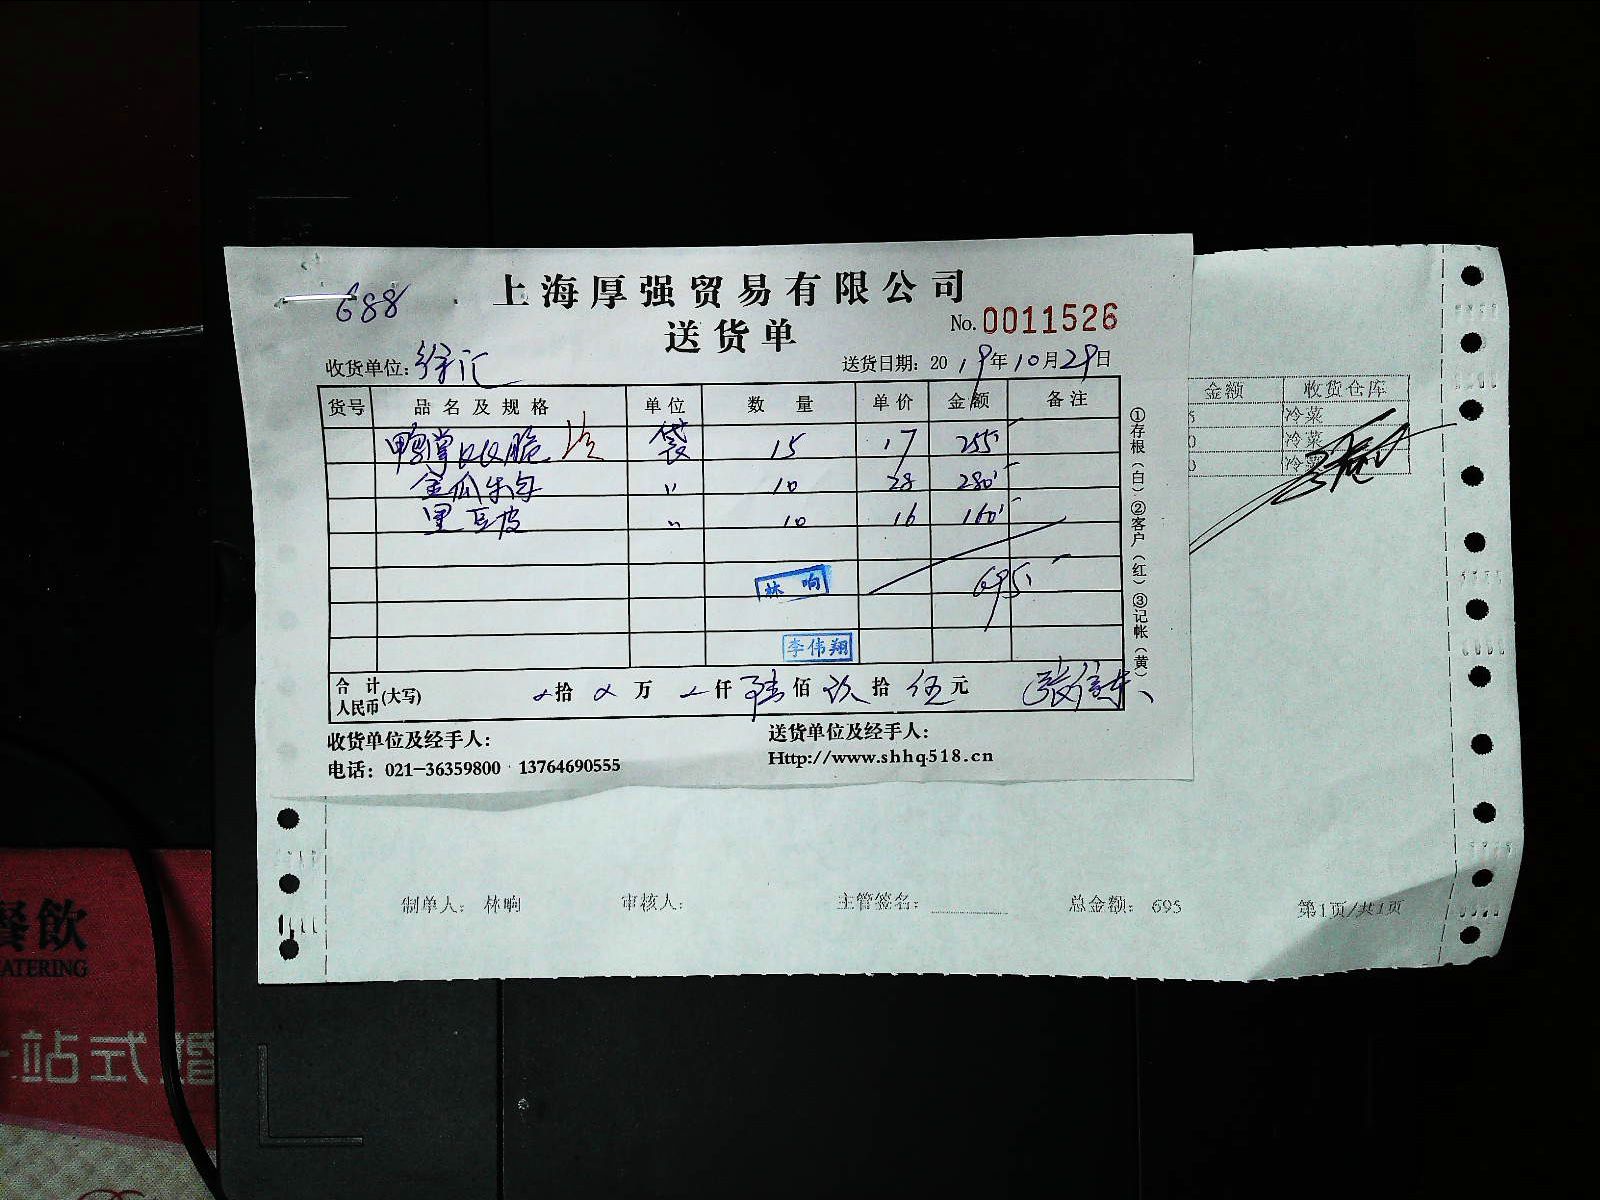 688
上海厚强贸易有限公司
送货单
No. 0011526
收货单位: 徐汇
送货日期: 2019年10月29日
货号 品名及规格 单位 数量 单价 金额 备注
鸭掌 脆 冷 袋 15 17 255
金瓜 10 28 280
黑豆皮 10 16 160
695
林 响
李伟翔
合计人民币(大写) 拾 万 仟陆佰玖拾伍元
收货单位及经手人:
送货单位及经手人:
电话: 021-36359800 13764690555
Http://www.shhq518.cn
①存根(白)②客户(红)③记帐(黄)
金额 收货仓库
5 冷菜
0 冷菜
0 冷菜
制单人: 林响 审核人: 主管签名: 总金额: 695 第1页/共1页
餐飲
CATERING
站式